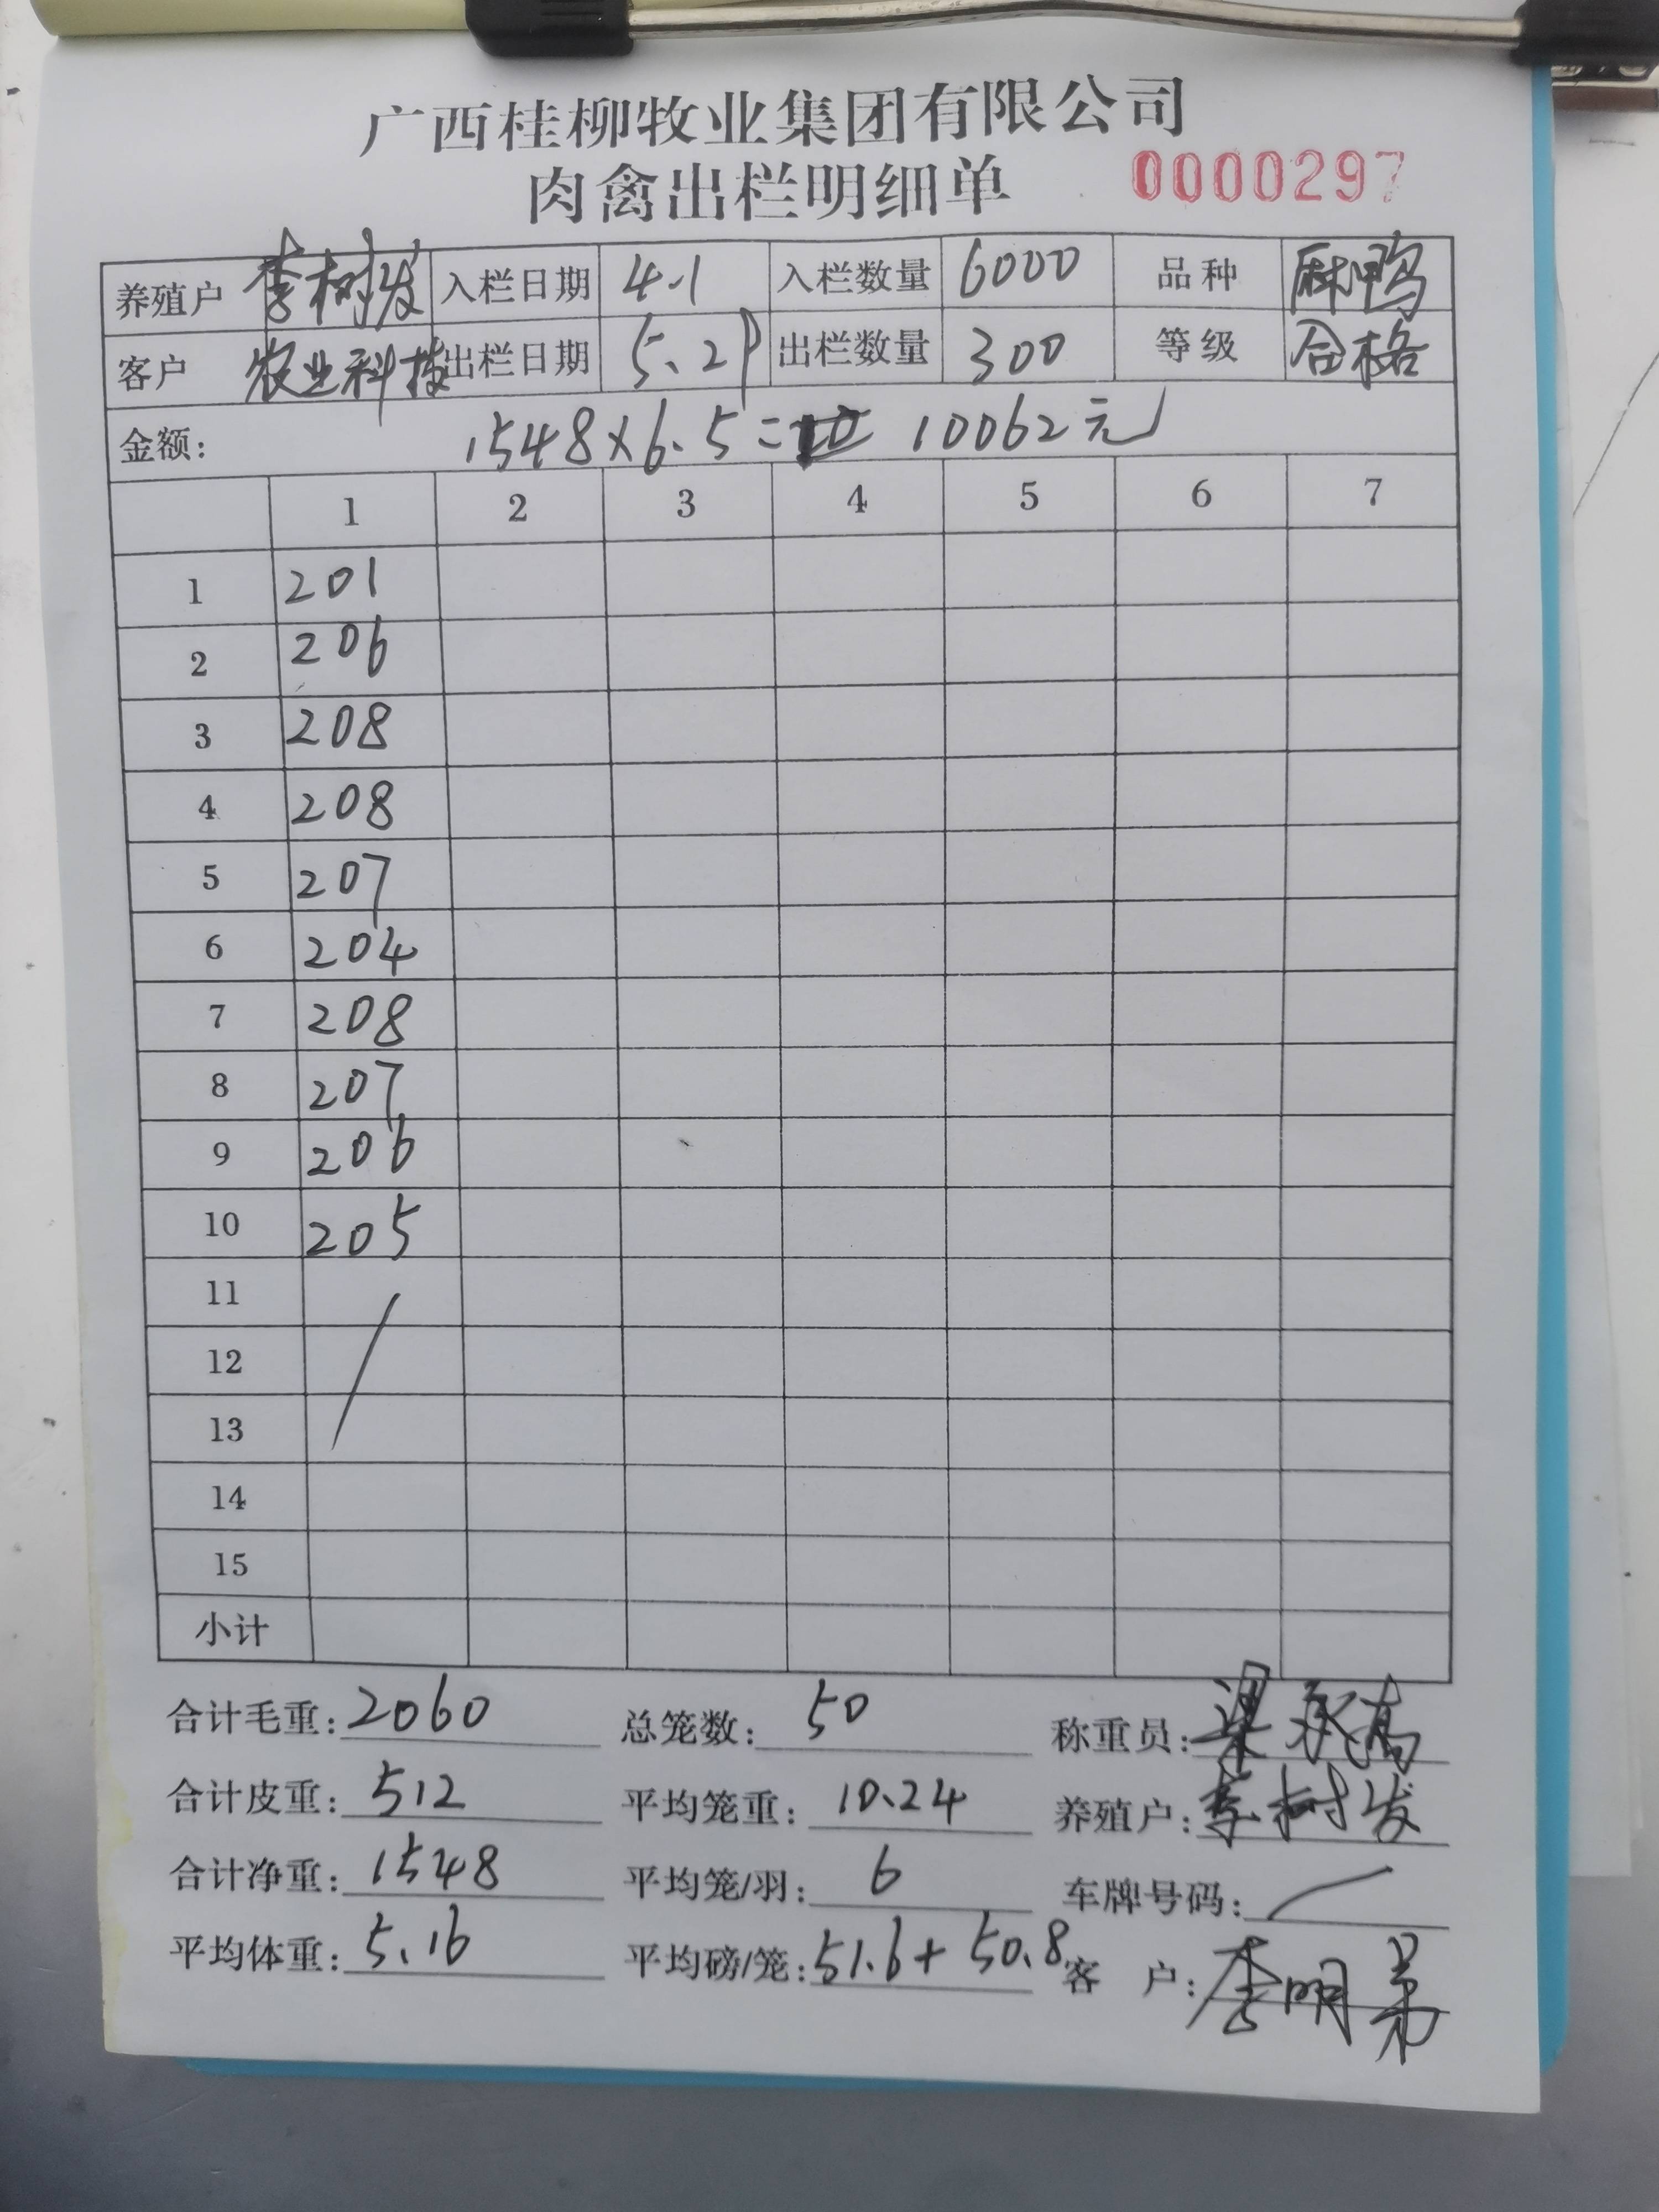 广西桂柳牧业集团有限公司
肉禽出栏明细单 0000297
养殖户 李树发 入栏日期 4.1 入栏数量 6000 品种 麻鸭
客户 农业科技 出栏日期 5.29 出栏数量 300 等级 合格
金额: 1548×6.5= 10062元
1 2 3 4 5 6 7
1 201
2 206
3 208
4 208
5 207
6 204
7 208
8 207
9 206
10 205
11
12
13
14
15
小计
合计毛重: 2060 总笼数: 50 称重员: 梁
合计皮重: 512 平均笼重: 10.24 养殖户: 李树发
合计净重: 1548 平均笼/羽: 6 车牌号码:
平均体重: 5.16 平均磅/笼: 51.6+50.8 客户: 李明